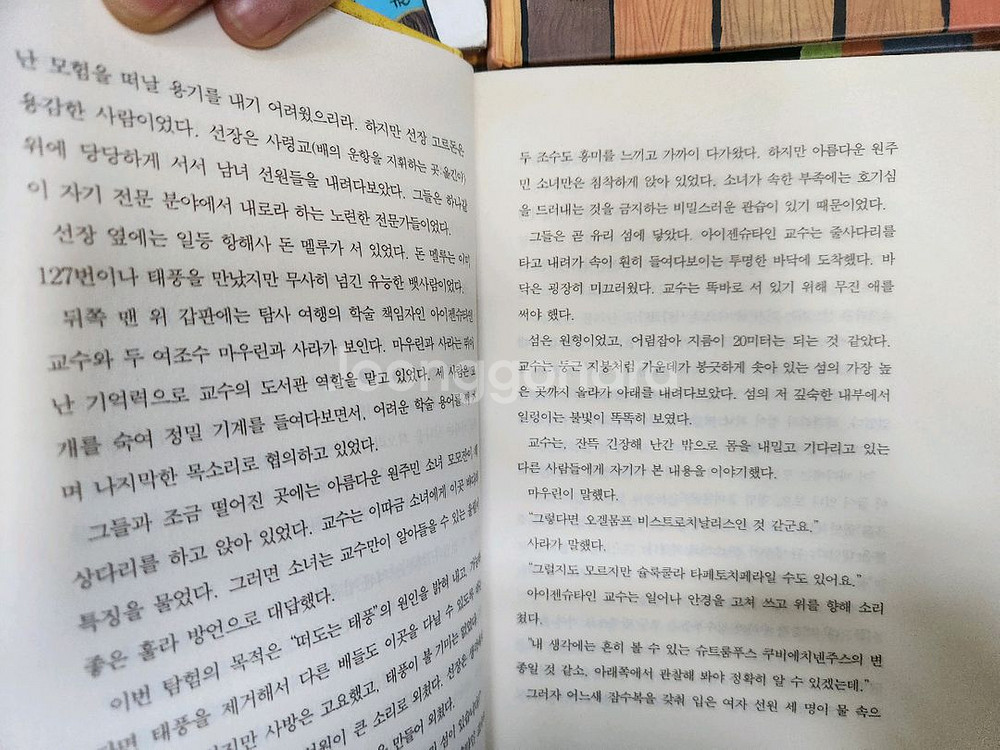 난 모험을 떠날 용기를 내기 어려웠으리라. 하지만 선장 고르돈은
용감한 사람이었다. 선장은 사령교(배의 운항을 지휘하는 곳:옮긴이)
위에 당당하게 서서 남녀 선원들을 내려다보았다. 그들은 하나같
이 자기 전문 분야에서 내로라 하는 노련한 전문가들이었다.
선장 옆에는 일등 항해사 돈 멜루가 서 있었다. 돈 멜루는 이미
127번이나 태풍을 만났지만 무사히 넘긴 유능한 뱃사람이었다.
뒤쪽 맨 위 갑판에는 탐사 여행의 학술 책임자인 아이젠슈타인
교수와 두 여조수 마우린과 사라가 보인다. 마우린과 사라는 뛰어
난 기억력으로 교수의 도서관 역할을 맡고 있었다. 세 사람은 고
개를 숙여 정밀 기계를 들여다보면서, 어려운 학술 용어를
며 나지막한 목소리로 협의하고 있었다.
그들과 조금 떨어진 곳에는 아름다운 원주민 소녀 모모잔이
상다리를 하고 앉아 있었다. 교수는 이따금 소녀에게 이곳 바다의
특징을 물었다. 그러면 소녀는 교수만이 알아들을 수 있는
좋은 훌라 방언으로 대답했다.
이번 탐험의 목적은 “떠도는 태풍”의 원인을 밝혀 내고,
태풍을 제거해서 다른 배들도 이곳을 다닐 수 있도록
사방은 고요했고, 태풍이 불 기미는 없었다.
큰 소리로 외쳤다. 선장은
만들어 외쳤다.
두 조수도 흥미를 느끼고 가까이 다가왔다. 하지만 아름다운 원주
민 소녀만은 침착하게 앉아 있었다. 소녀가 속한 부족에는 호기심
을 드러내는 것을 금지하는 비밀스러운 관습이 있기 때문이었다.
그들은 곧 유리 섬에 닿았다. 아이젠슈타인 교수는 줄사다리를
타고 내려가 속이 훤히 들여다보이는 투명한 바닥에 도착했다. 바
닥은 굉장히 미끄러웠다. 교수는 똑바로 서 있기 위해 무진 애를
써야 했다.
섬은 원형이었고, 어림잡아 지름이 20미터는 되는 것 같았다.
교수는 둥근 지붕처럼 가운데가 봉긋하게 솟아 있는 섬의 가장 높
은 곳까지 올라가 아래를 내려다보았다. 섬의 저 깊숙한 내부에서
일렁이는 불빛이 똑똑히 보였다.
교수는, 잔뜩 긴장해 난간 밖으로 몸을 내밀고 기다리고 있는
다른 사람들에게 자기가 본 내용을 이야기했다.
마우린이 말했다.
“그렇다면 오겔뭄프 비스트로치날리스인 것 같군요.”
사라가 말했다.
“그럴지도 모르지만 슐룩쿨라 타페토치페라일 수도 있어요.”
아이젠슈타인 교수는 일어나 안경을 고쳐 쓰고 위를 향해 소리
쳤다.
“내 생각에는 흔히 볼 수 있는 슈트룸푸스 쿠비에치넨주스의 변
종일 것 같소. 아래쪽에서 관찰해 봐야 정확히 알 수 있겠는데.”
그러자 어느새 잠수복을 갖춰 입은 여자 선원 세 명이 물 속으